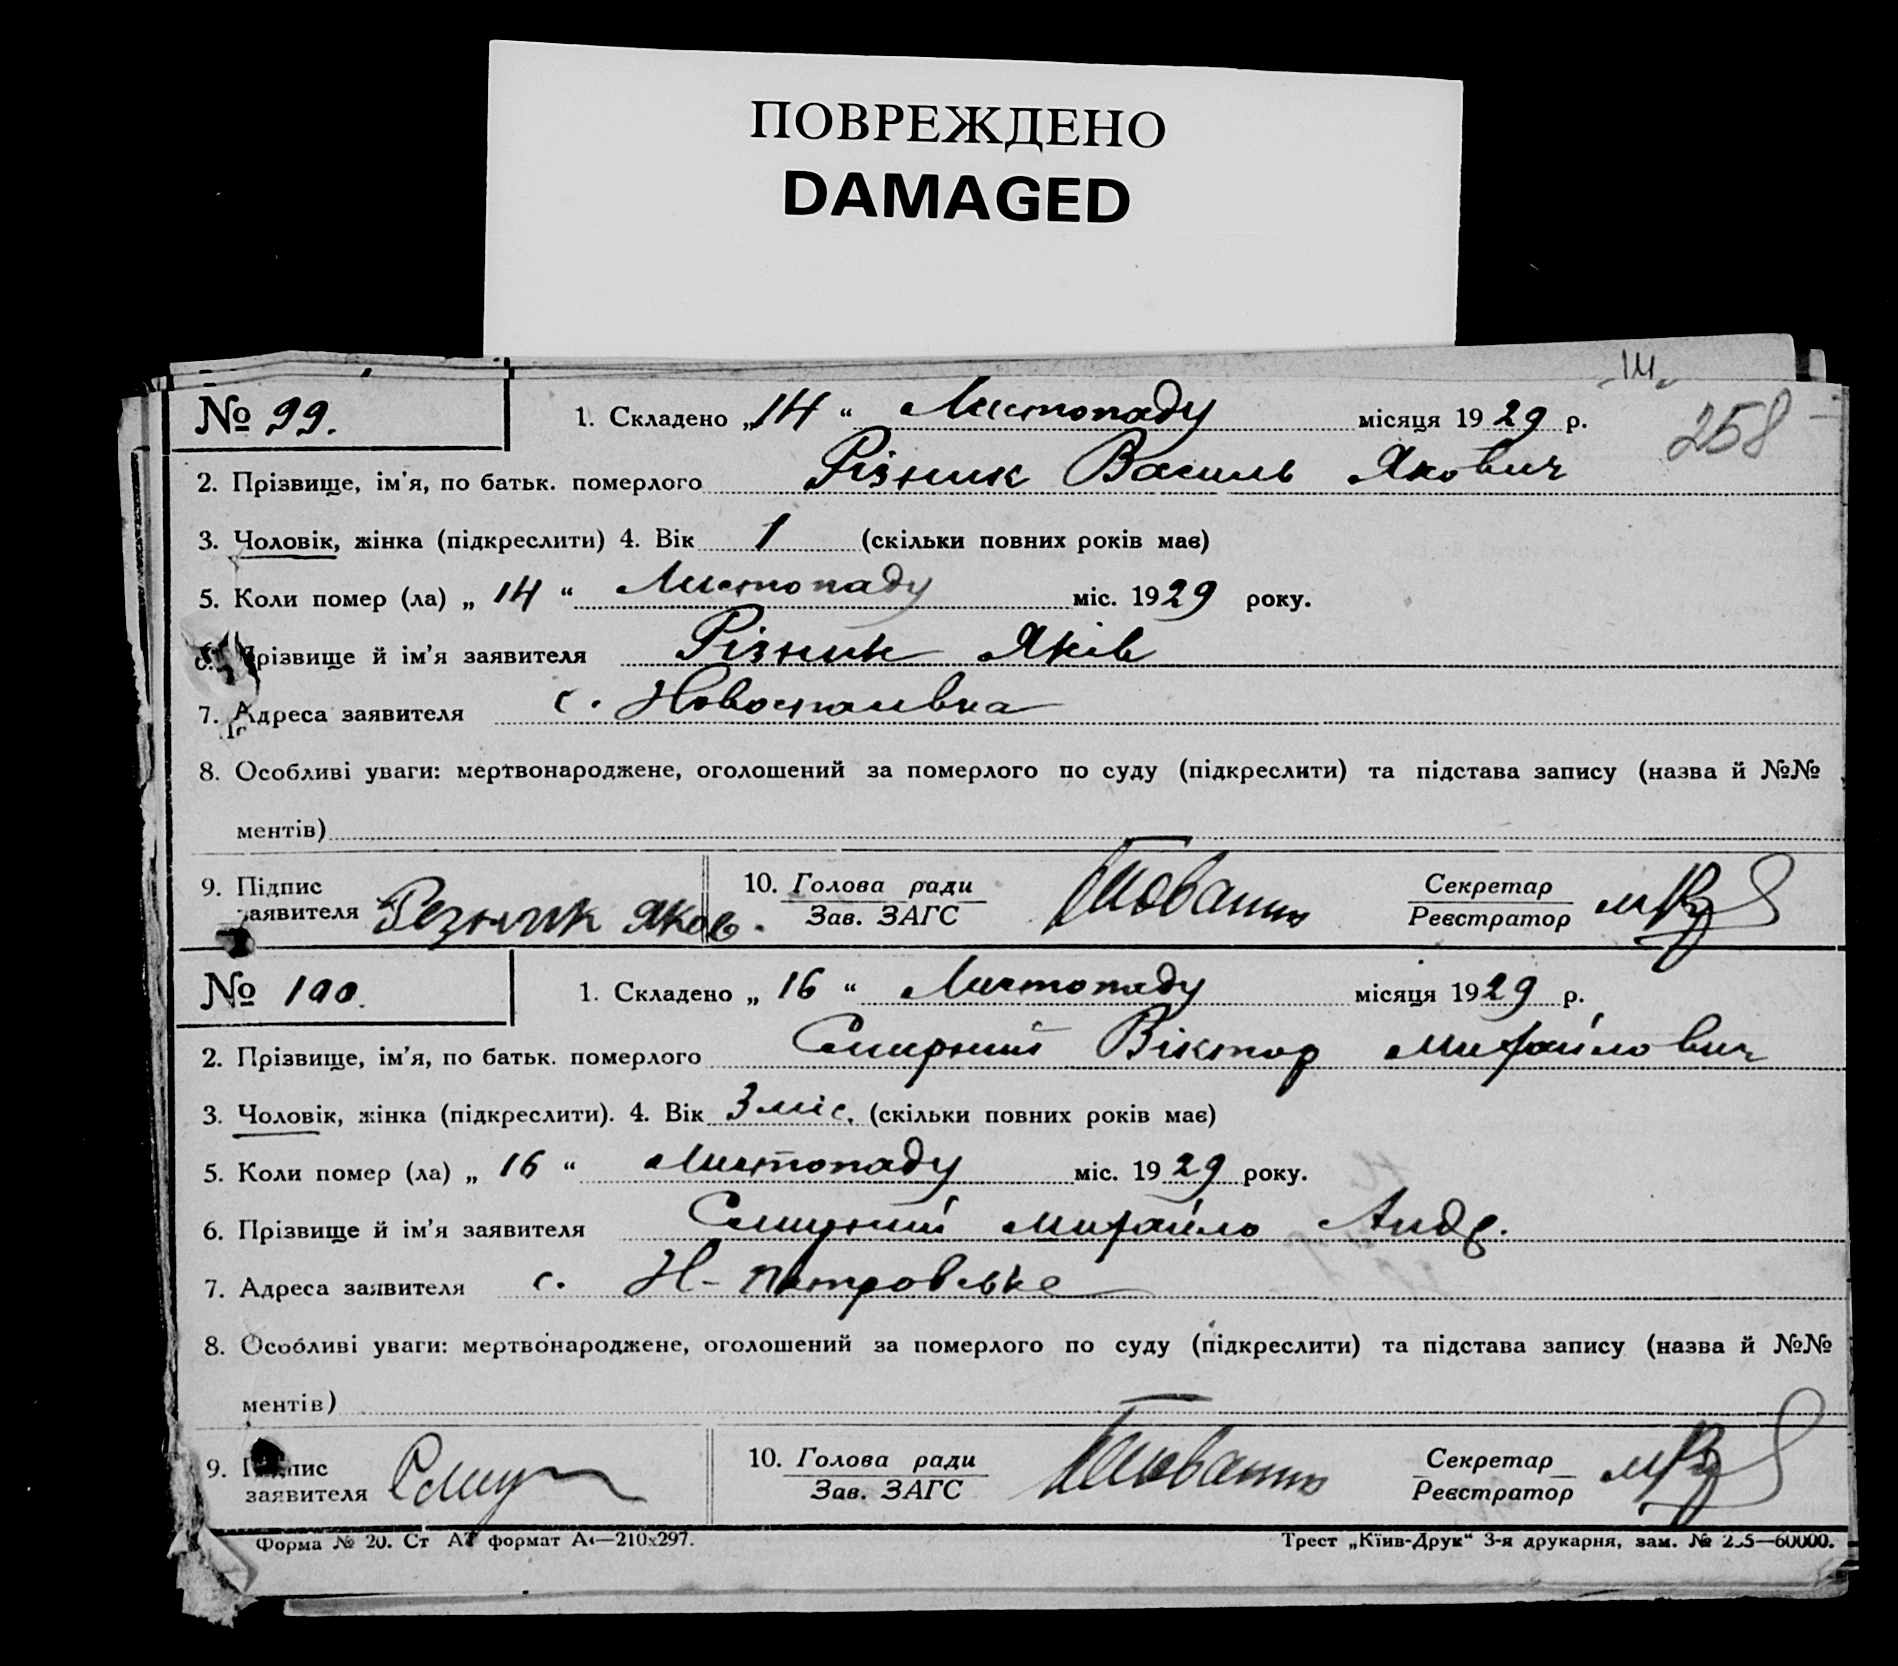 ПОВРЕЖДЕНО
DAMAGED
„14„
258
№ 99. 1. Складено „14“ Листопаду місяця 1929 р.
2. Прізвище, ім'я, по батьк. померлого Різник Василь Якович
3. Чоловік, жінка (підкреслити) 4. Вік 1 (скільки повних років має)
5. Коли помер (ла) „14“ Листопаду міс. 1929 року.
6. Прізвище й ім'я заявителя Різник Яків
7. Адреса заявителя с.
8. Особливі уваги: мертвонароджене, оголошений за померлого по суду (підкреслити) та підстава запису (назва й №№
ментів)
9. Підпис заявителя Резник Яков. 10. Голова ради Зав. ЗАГС Секретар Реєстратор
№ 100. 1. Складено „16“ Листопаду місяця 1929 р.
2. Прізвище, ім'я, по батьк. померлого Смирний Віктор Михайлович
3. Чоловік, жінка (підкреслити). 4. Вік 3 міс. (скільки повних років має)
5. Коли помер (ла) „16“ Листопаду міс. 1929 року.
6. Прізвище й ім'я заявителя Смирний Михайло Андр.
7. Адреса заявителя с. Н-Петровське
8. Особливі уваги: мертвонароджене, оголошений за померлого по суду (підкреслити) та підстава запису (назва й №№
ментів)
9. Підпис заявителя 10. Голова ради Зав. ЗАГС Секретар Реєстратор
Форма № 20. Ст А7 формат А4—210x297. Трест „Київ-Друк“ 3-я друкарня, зам. № —60000.